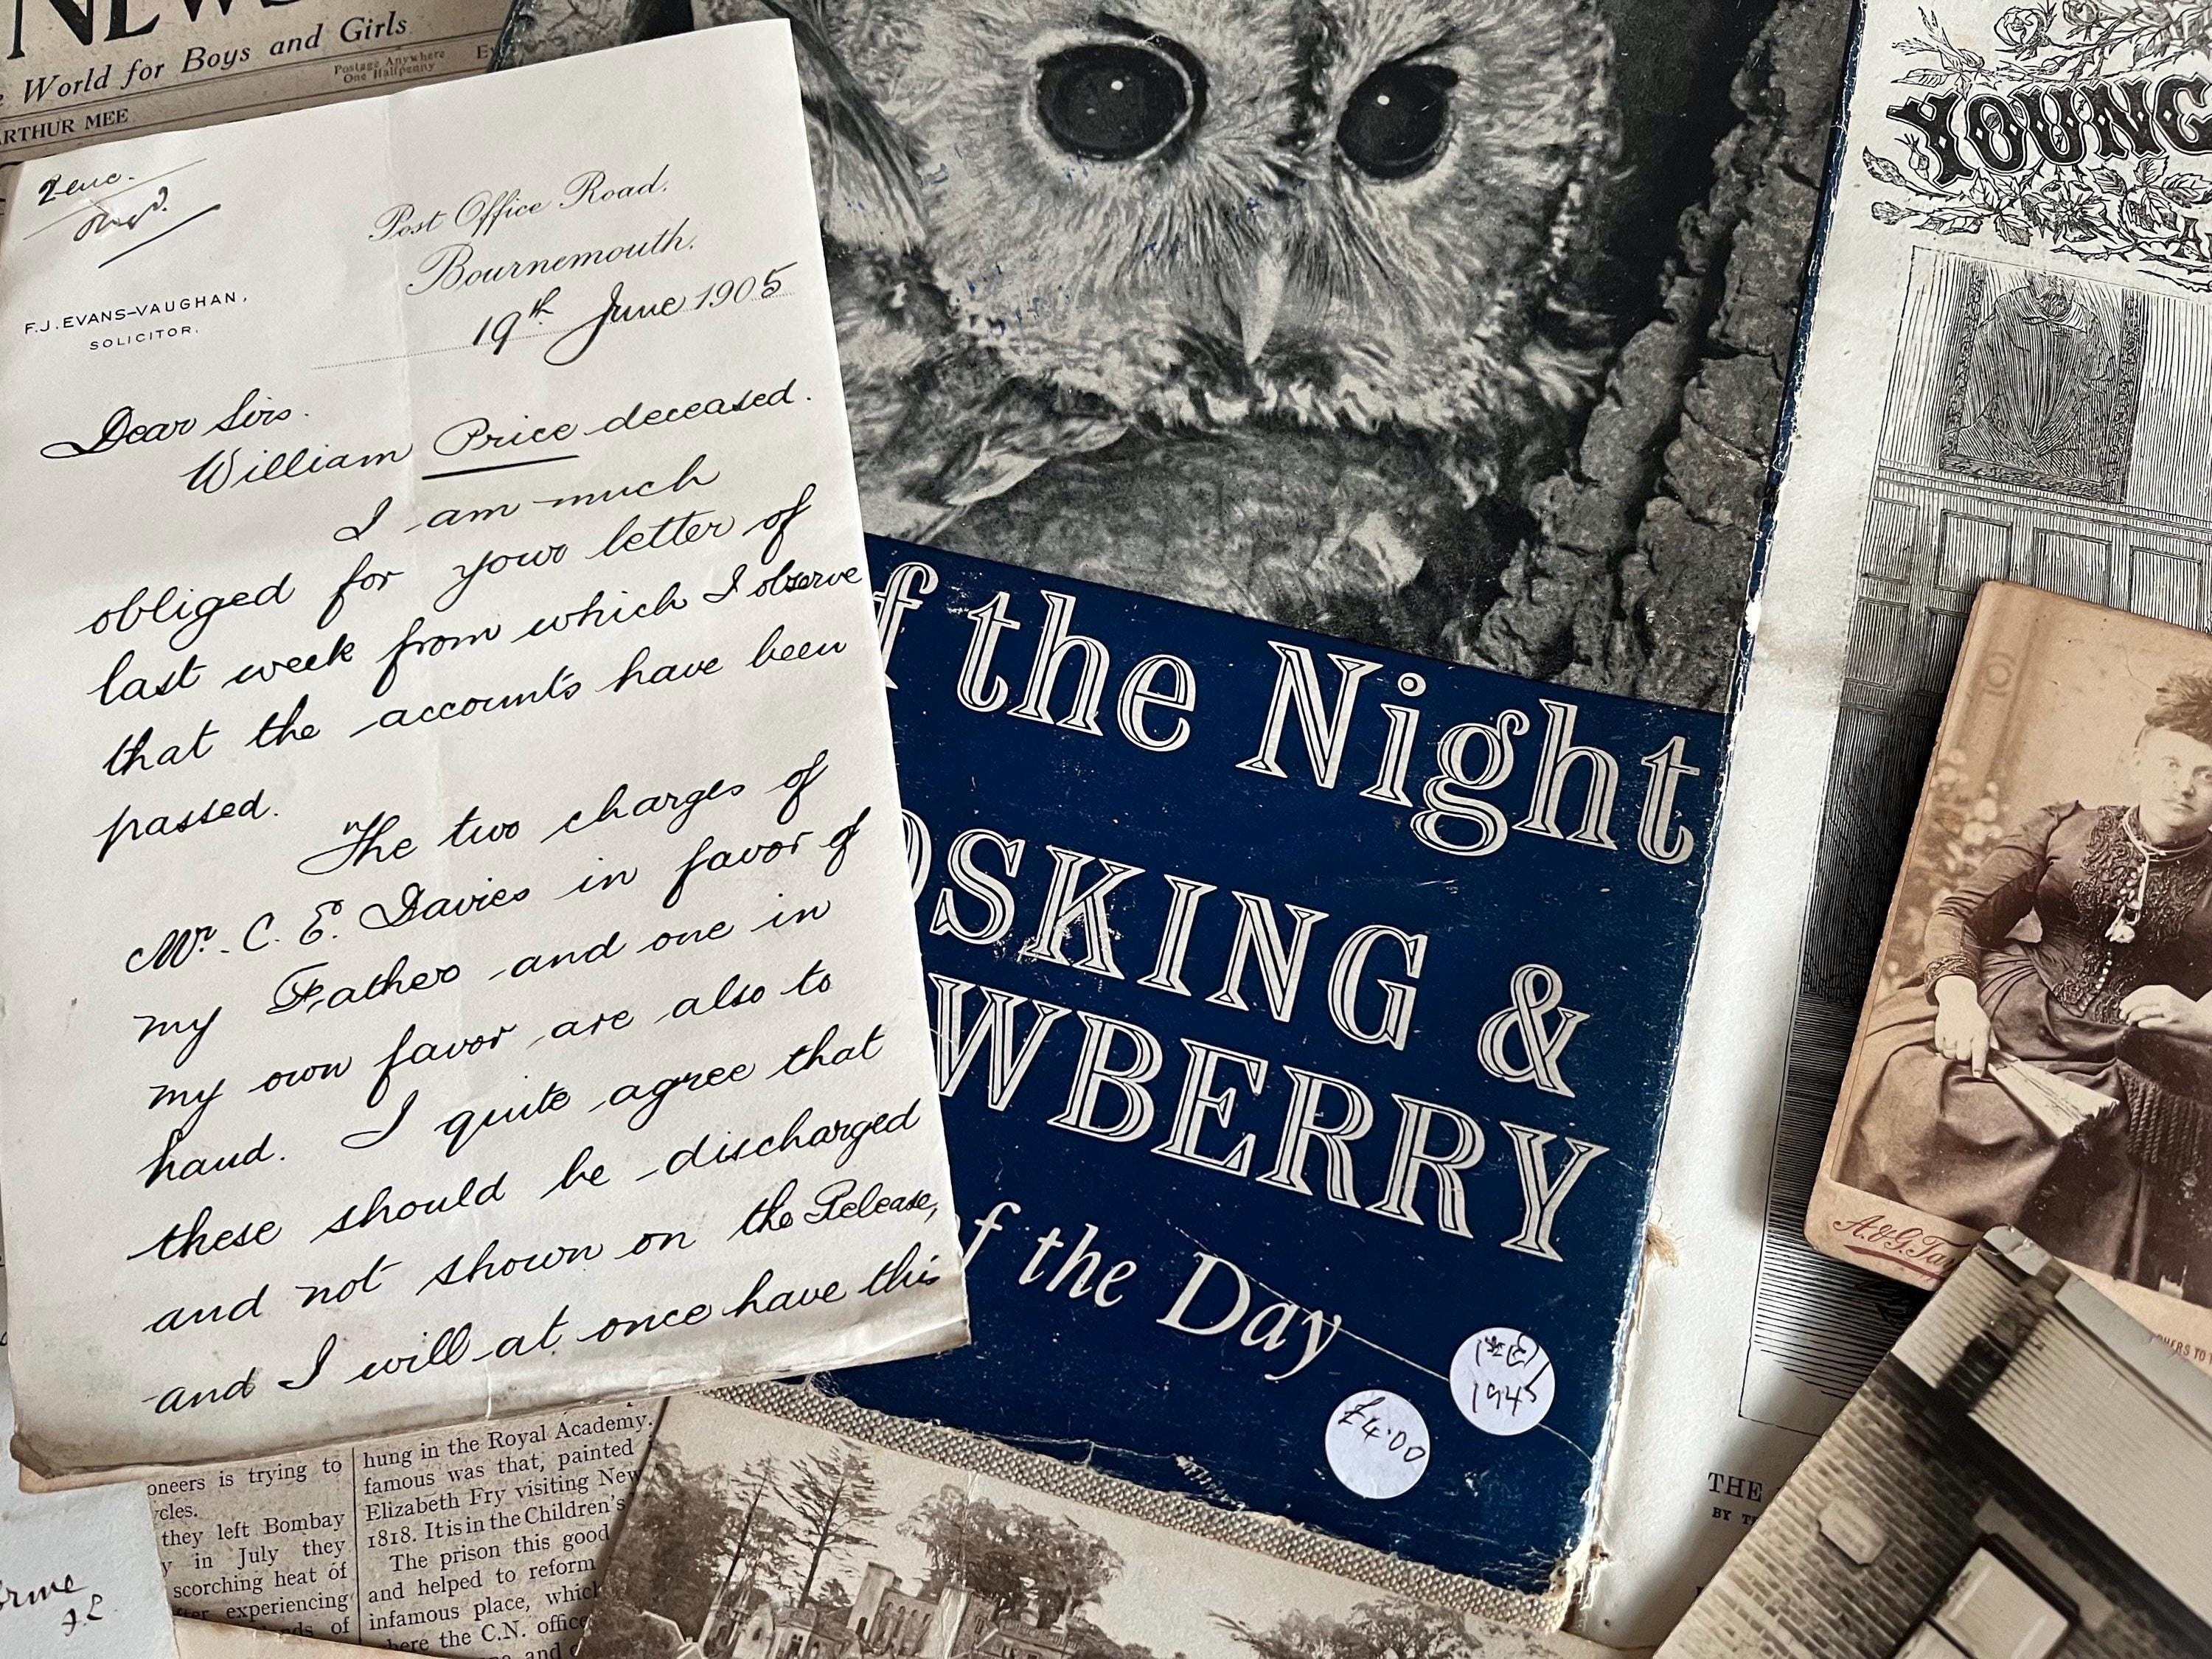 NEWS
World for Boys and Girls
Postage Anywhere
One Halfpenny
ARTHUR MEE
2 enc.
F.J. EVANS-VAUGHAN,
SOLICITOR.
Post Office Road.
Bournemouth.
19th June 1905
Dear Sirs.
William Price deceased.
I am much
obliged for your letter of
last week from which I observe
that the accounts have been
passed.
The two charges of
Mr. C. E. Davies in favor of
my Father and one in
my own favor are also to
hand. I quite agree that
these should be discharged
and not shown on the Release,
and I will at once have this
f the Night
OSKING &
WBERRY
of the Day
1st Ed
1945
£4.00
YOUNG
A. & G. Ta
THE
oneers is trying to
ycles.
they left Bombay
y in July they
scorching heat of
experiencing
ds of
hung in the Royal Academy.
famous was that, painted
Elizabeth Fry visiting New
1818. It is in the Children's
The prison this good
and helped to reform
infamous place, which
here the C.N. office
and